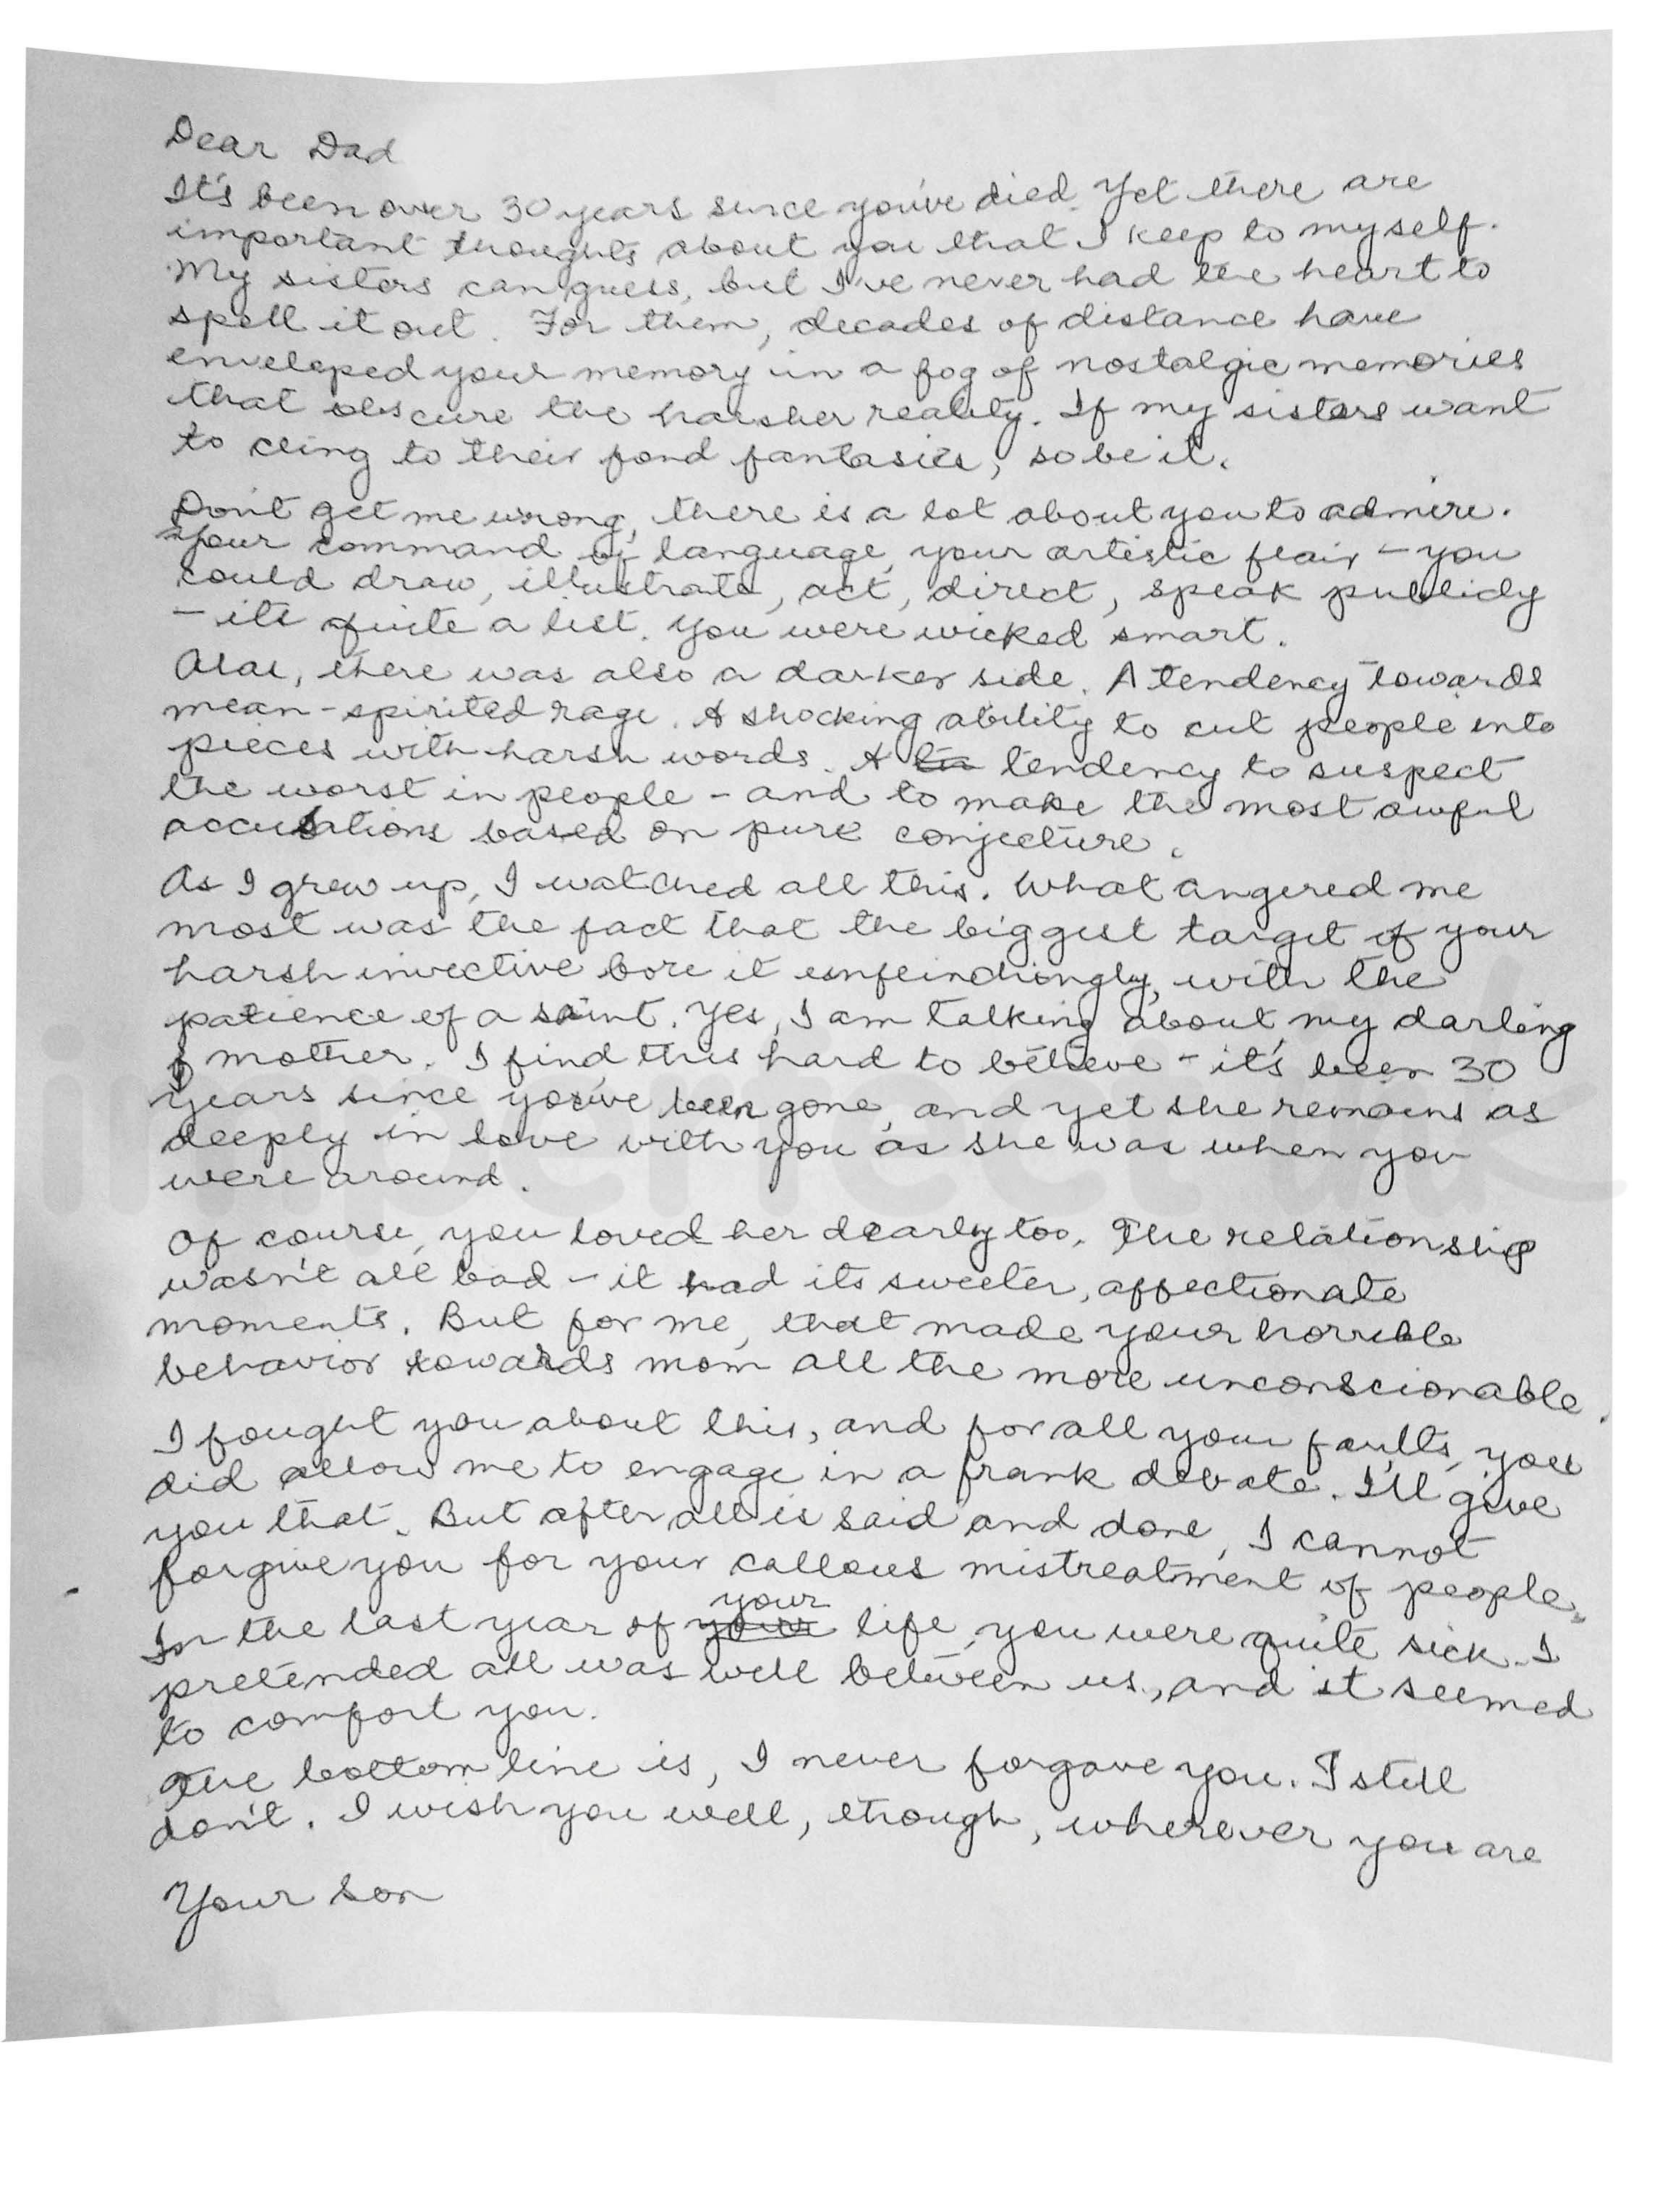 Dear Dad
It's been over 30 years since you've died. Yet there are
important thoughts about you that I keep to myself.
My sisters can guess, but I've never had the heart to
spell it out. For them, decades of distance have
enveloped your memory in a fog of nostalgic memories
that obscure the harsher reality. If my sisters want
to cling to their fond fantasies, so be it.
Don't get me wrong, there is a lot about you to admire.
Your command of language, your artistic flair - you
could draw, illustrate, act, direct, speak publicly
- it's quite a list. You were wicked smart.
Alas, there was also a darker side. A tendency towards
mean-spirited rage. A shocking ability to cut people into
pieces with harsh words. A tendency to suspect
the worst in people - and to make the most awful
accusations based on pure conjecture.
As I grew up, I watched all this. What angered me
most was the fact that the biggest target of your
harsh invective bore it unflinchingly, with the
patience of a saint. Yes, I am talking about my darling
mother. I find this hard to believe - it's been 30
years since you've been gone, and yet she remains as
deeply in love with you as she was when you
were around.
Of course, you loved her dearly too. The relationship
wasn't all bad - it had its sweeter, affectionate
moments. But for me, that made your horrible
behavior towards mom all the more unconscionable.
I fought you about this, and for all your faults, you
did allow me to engage in a frank debate. I'll give
you that. But after all is said and done, I cannot
forgive you for your callous mistreatment of people.
In the last year of your life, you were quite sick. I
pretended all was well between us, and it seemed
to comfort you.
The bottom line is, I never forgave you. I still
don't. I wish you well, though, wherever you are
Your son